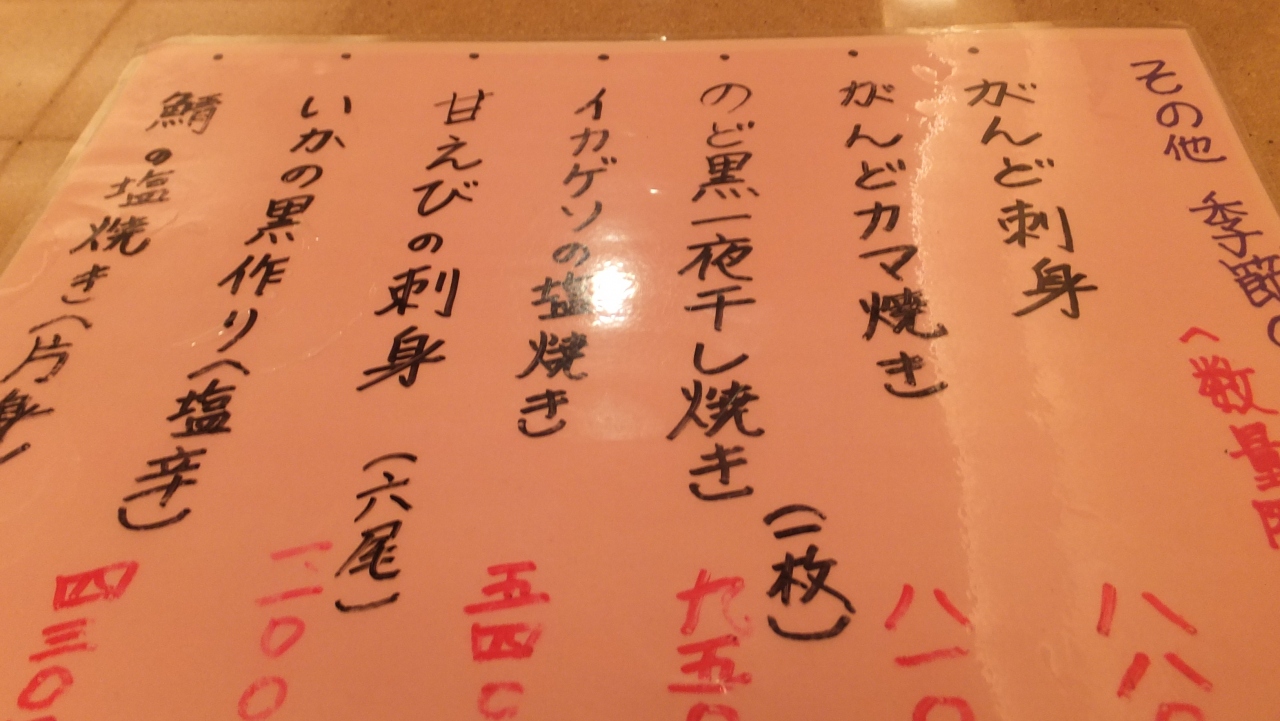 その他 季節の
(数量限
・がんど刺身 八八
・がんどカマ焼き 八一〇
・のど黒一夜干し焼き (一枚) 九五〇
・イカゲソの塩焼き 五四〇
・甘えびの刺身 (六尾)
・いかの黒作り(塩辛) 四三〇
・鯖の塩焼き(片身)